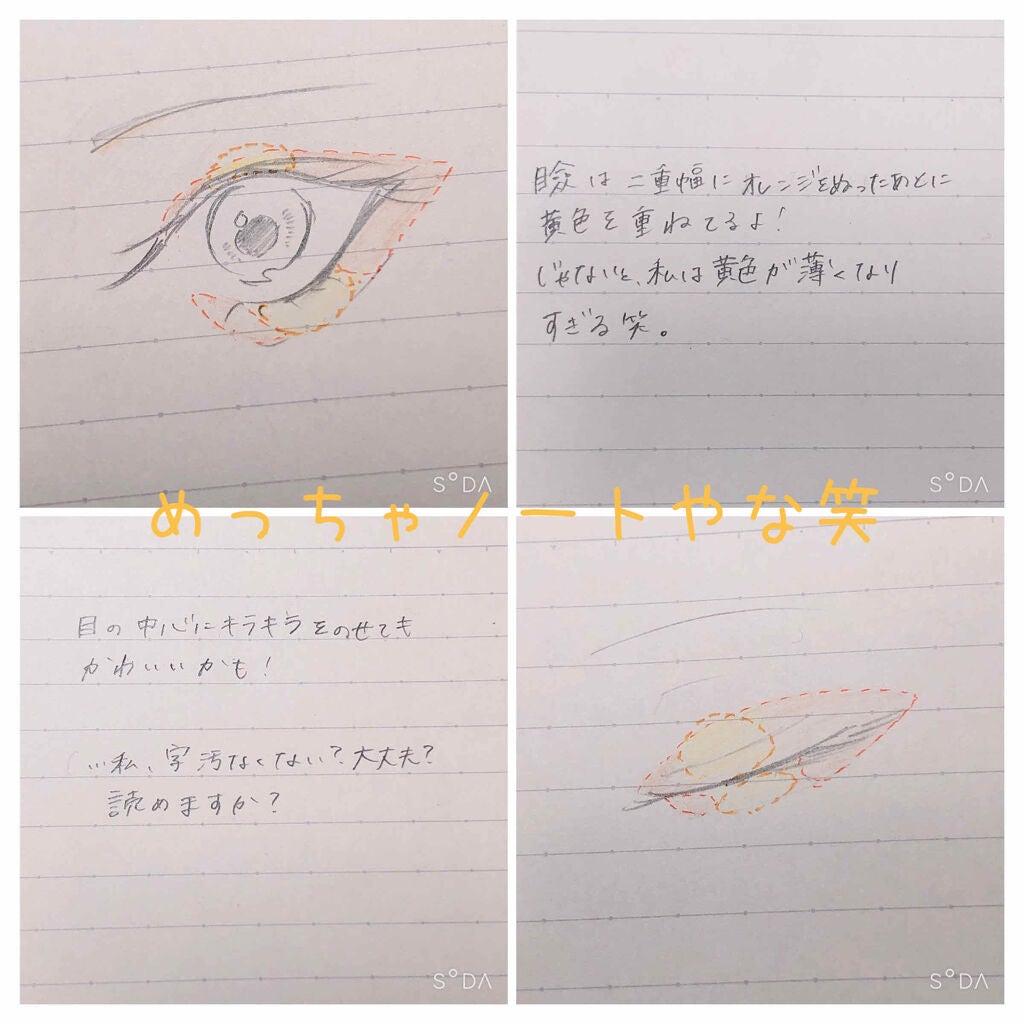 瞼は二重幅にオレンジをぬったあとに
黄色を重ねてるよ!
じゃないと、私は黄色が薄くなり
すぎる笑。
SODA
SODA
めっちゃノートやな笑
目の中心にキラキラをのせても
かわいいかも!
…私、字汚なくない?大丈夫?
読めますか?
SODA
SODA